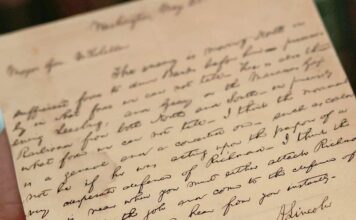 Washington, May 25
Major Gen. McClellan
The enemy is moving North in
sufficient force to drive Banks before him in precise-
ly what force we can not tell. He is also threat-
ening Leesburg and Geary on the Manassas Gap
Railroad from both North and South in precisely
what force we can not tell. I think the movement
is a general and concerted one such as could
not be if he was acting upon the purpose of a
very desperate defence of Richmond. I think the
is near when you must either attack Richmond
the job and come to the defence of
hear from you instantly.
A. Lincoln